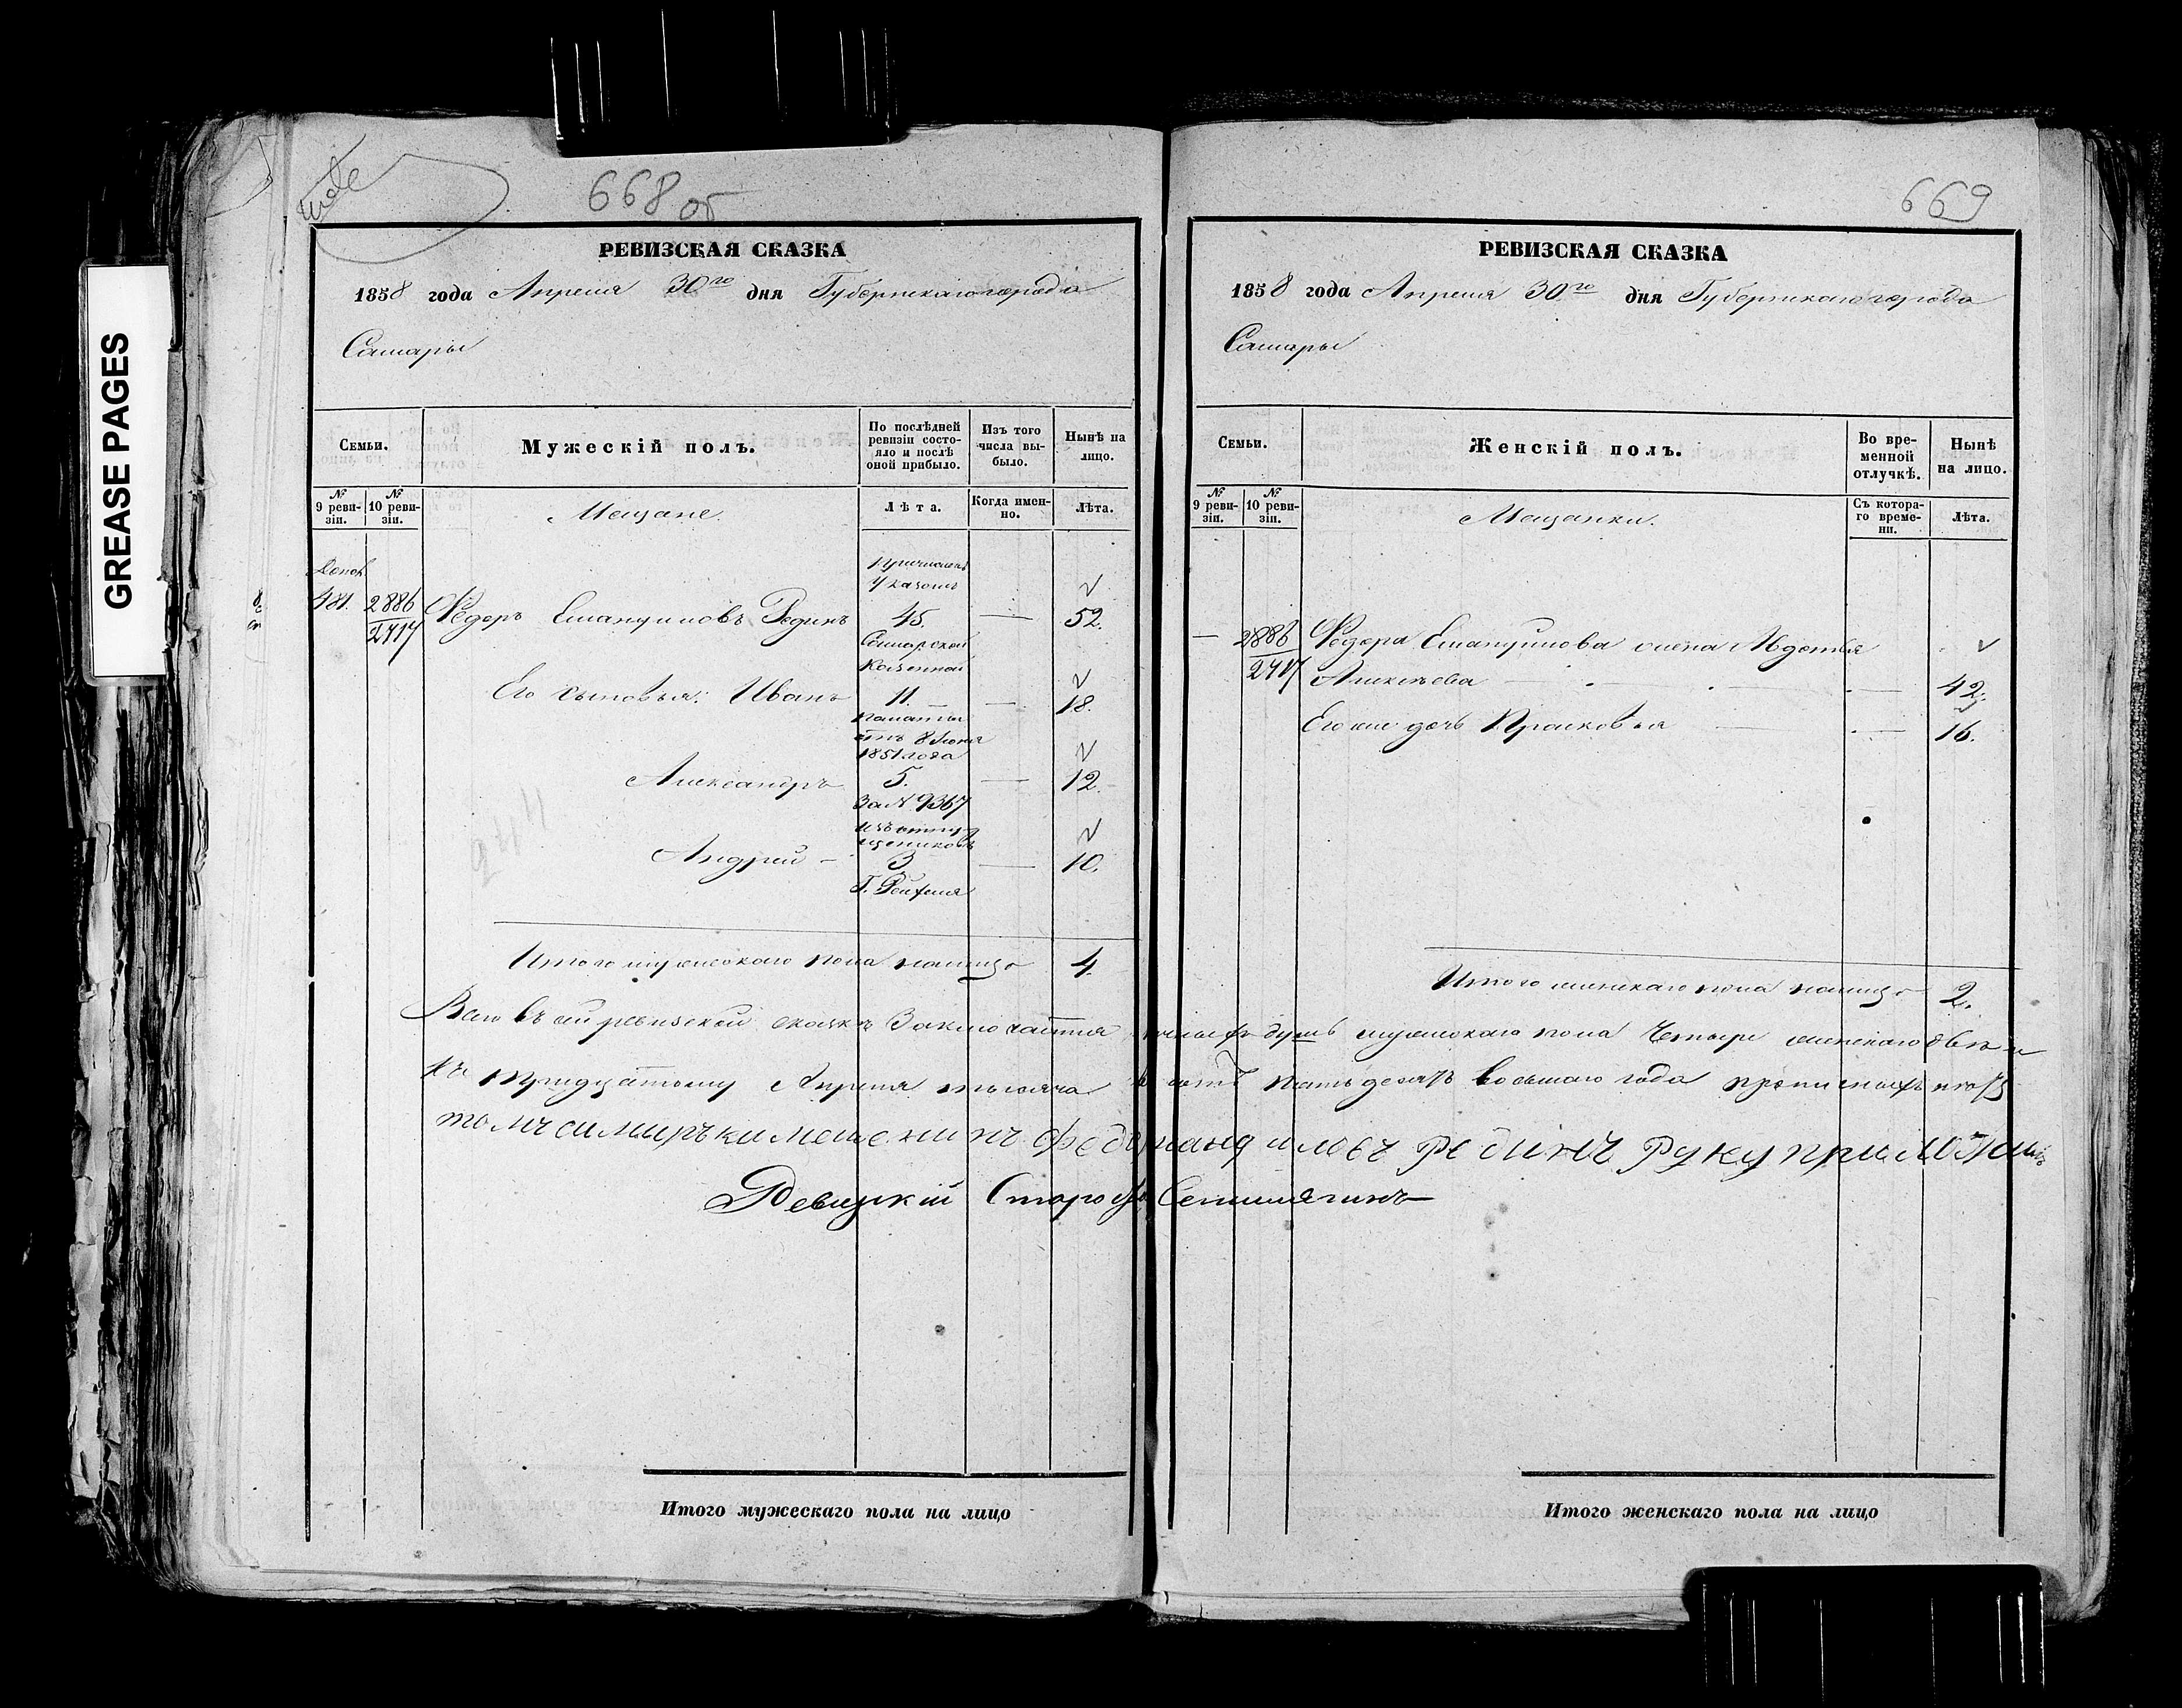 GREASE PAGES
668 об
РЕВИЗСКАЯ СКАЗКА
1858 года Апреля 30го дня Губернскаго города
Самары
Семьи.
Мужескій полъ.
По послѣдней ревизіи состояло и послѣ оной прибыло.
Изъ того числа выбыло.
Нынѣ на лицо.
№ 9 ревизіи.
№ 10 ревизіи.
Мещане.
Лѣта.
Когда именно.
Лѣта.
Допол
481.
2886
2417
Федоръ Емануиловъ Рединъ
причислены
указомъ
45.
—
52.
Самарской
Казенной
Его сыновья: Иванъ
11.
—
18.
палаты
отъ 8 Июня
1851 года
Александръ
5.
—
12.
За № 9367
изъ отпу
щениковъ
Андрей —
3
—
10.
Итого мужескаго пола налицо
4.
669
РЕВИЗСКАЯ СКАЗКА
1858 года Апреля 30го дня Губернскаго города
Самары
Семьи.
Женскій полъ.
Во временной отлучкѣ.
Нынѣ на лицо.
№ 9 ревизіи.
№ 10 ревизіи.
Мещанки.
Съ котораго времени.
Лѣта.
—
2886
2417
Федора Емануилова жена Авдотья
Алексѣева
—
42.
Его же дочь Прасковья
—
16.
Итого женскаго пола налицо
2.
Всего въ сей ревизской сказкѣ Заключается душъ мужескаго пола Четыре женскаго двѣ и
къ тридцатому Апреля тысяча пятьдесятъ восьмаго года прописныхъ
Рединъ Руку приложилъ
Ревизкій Староста
Итого мужескаго пола на лицо
Итого женскаго пола на лицо